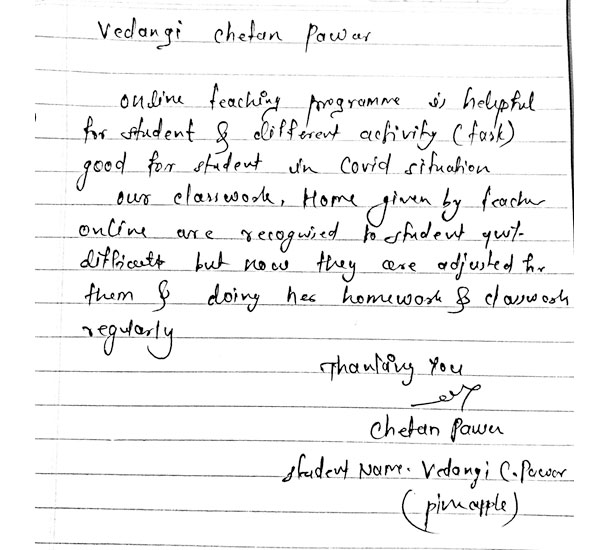 Vedangi Chetan Pawar
online teaching programme is helpful
for student & different activity (task)
good for student in Covid situation
our classwork, Home given by teacher
online are recognised to student quit
difficult but now they are adjusted for
them & doing her homework & classwork
regularly
Thanking You
Chetan Pawar
Student Name. Vedangi C. Pawar
(pineapple)